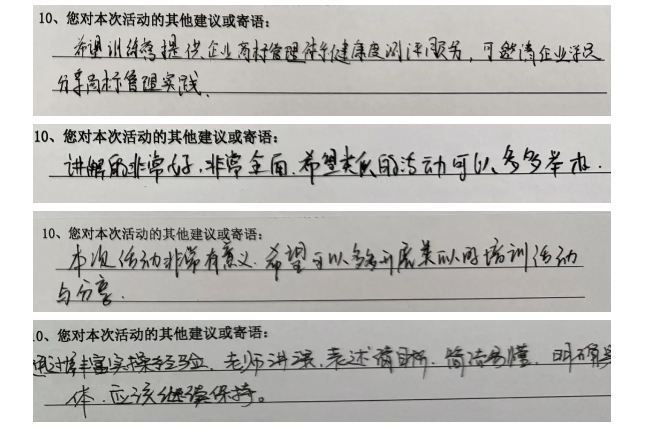 10、您对本次活动的其他建议或寄语:
希望训练营提供企业商标管理体系健康度测评服务，可邀请企业学员
分享商标管理实践.
10、您对本次活动的其他建议或寄语:
讲解的非常好,非常全面.希望类似的活动可以多多举办.
10、您对本次活动的其他建议或寄语:
本次活动非常有意义.希望可以多多开展类似的培训活动
与分享.
0、您对本次活动的其他建议或寄语:
通过丰富实操经验、老师讲课、表述清晰、简洁易懂、明确具
体.应该继续保持。